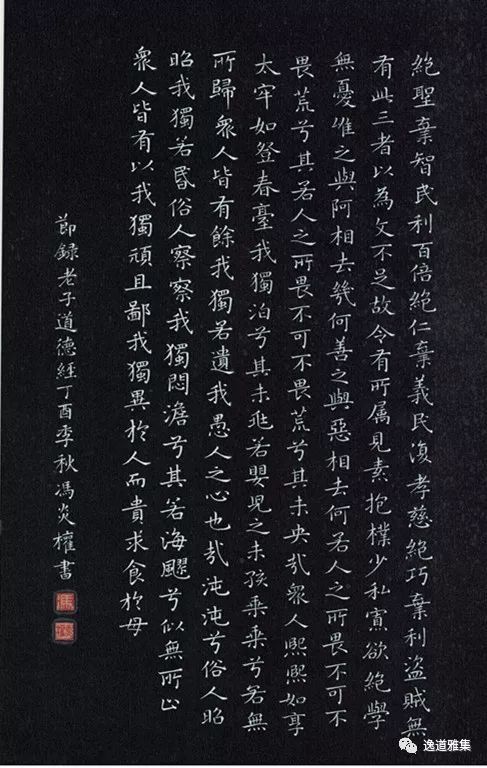 絕聖棄智民利百倍絕仁棄義民復孝慈絕巧棄利盜賊無
有此三者以為文不足故令有所属見素抱樸少私寡欲絕學
無憂唯之與阿相去幾何善之與惡相去何若人之所畏不可不
畏荒兮其若人之所畏不可不畏荒兮其未央哉衆人熙熙如享
太牢如登春臺我獨泊兮其未兆若嬰兒之未孩乘乘兮若無
所歸衆人皆有餘我獨若遺我愚人之心也哉沌沌兮俗人昭
昭我獨若昬俗人察察我獨悶澹兮其若海飂兮似無所止
衆人皆有以我獨頑且鄙我獨異於人而貴求食於母
節録老子道德經丁酉季秋馮炎權書
馮
逸道雅集